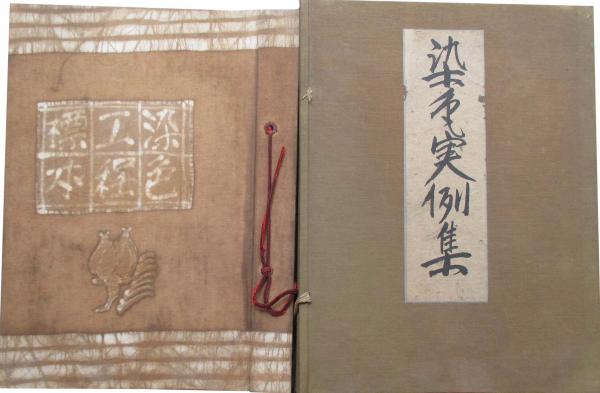 染色
工程
標本
染色実例集